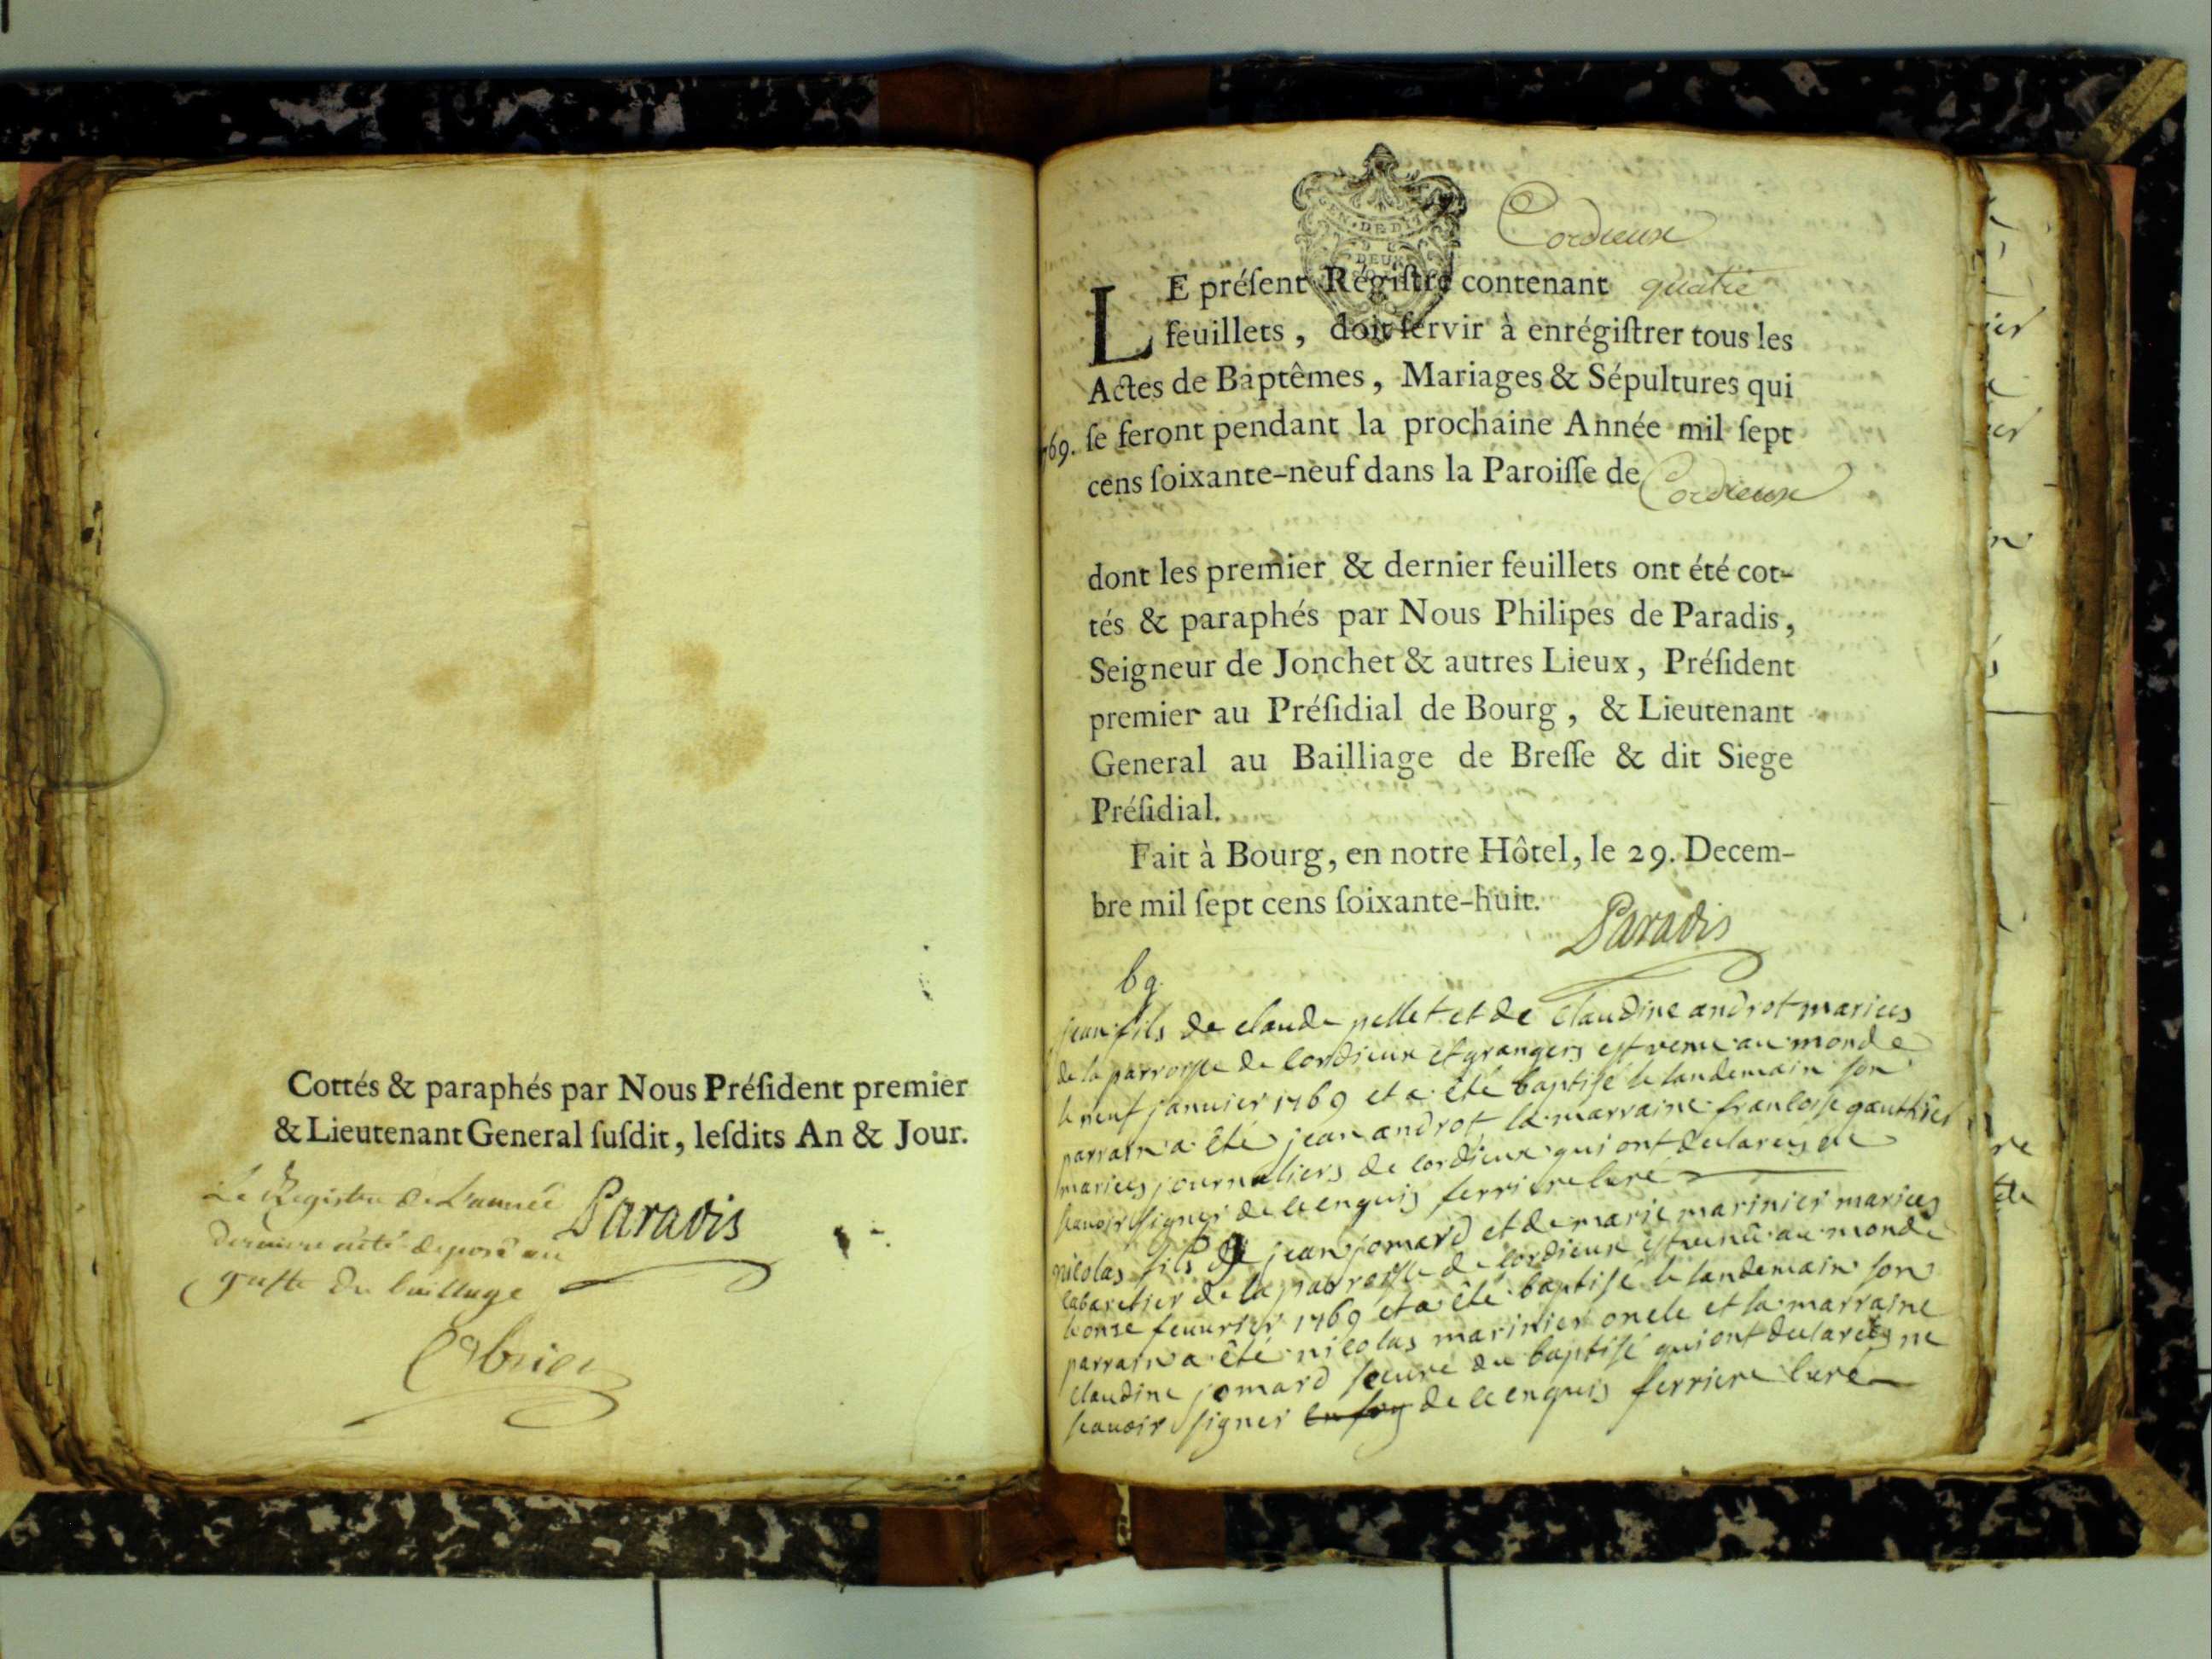 Cottés & paraphés par Nous Préſident premier
& Lieutenant General ſuſdit, leſdits An & Jour.
Le Registre de L'année
derniere a eté deposé au
greffe du bailliage
Paradis
EN. DEDI
DEUX
Cordieux
LE préſent Régiſtre contenant quatre
feuillets, doit ſervir à enrégiſtrer tous les
Actes de Baptêmes, Mariages & Sépultures qui
ſe feront pendant la prochaine Année mil ſept
769.
cens ſoixante-neuf dans la Paroiſſe de Cordieux
dont les premier & dernier feuillets ont été cot-
tés & paraphés par Nous Philipes de Paradis,
Seigneur de Jonchet & autres Lieux, Préſident
premier au Préſidial de Bourg, & Lieutenant
General au Bailliage de Breſſe & dit Siege
Préſidial.
Fait à Bourg, en notre Hôtel, le 29. Decem-
bre mil ſept cens ſoixante-huit.
Paradis
jean fils de claude pellet et de claudine androt mariees
de la parroisse de cordieux et grangers est venu au monde
le neuf januier 1769 et a été baptisé le landemain son
parrain a été jean androt la marraine francoise gauthier
mariees journaliers de cordieux qui ont declarees ne
scauoir signer de ce enquis ferriere curé
nicolas fils de jean jomard et de marie marinier mariees
cabaretier de la parroisse de cordieux est venû au monde
le onze feuurier 1769 et a été baptisé le landemain son
parrain a été nicolas marinier oncle et la marraine
claudine jomard soeure du baptisé qui ont declarees ne
scauoir signer de ce enquis ferriere curé